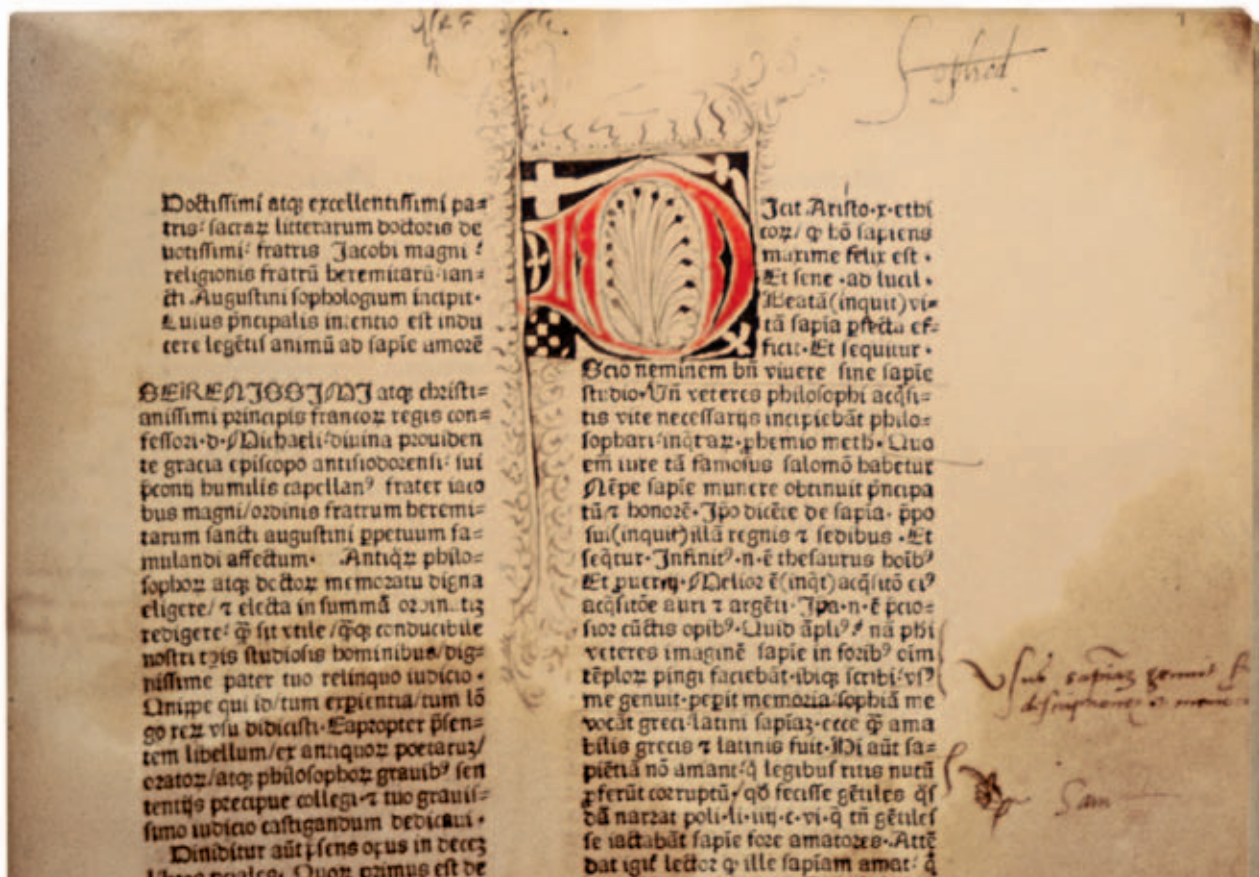 Doctissimi atqꝫ excellentissimi pa⸗
tris: sacraꝝ litterarum doctoris de
uotissimi: fratris Jacobi magni :
religionis fratrū heremitarū: san⸗
cti Augustini sophologium incipit·
Cuius p̄ncipalis intencio est indu
cere legētis animū ad sapīe amorē
SERENISSIMI atqꝫ christi⸗
anissimi principis francoꝝ regis con⸗
fessori·d·Michaeli: diuina prouiden
te gracia episcopo antisiodorensi: sui
p̄conij humilis capellanꝰ frater iaco
bus magni/ordinis fratrum heremi⸗
tarum sancti augustini ꝑpetuum fa⸗
mulandi affectum· Antiq̄ꝝ philo⸗
sophoꝝ atqꝫ doctoꝝ memoratu digna
eligere/ ⁊ electa in summā
redigere: q̄ꝫ sit vtile /q̄qꝫ conducibile
nostri tꝑis studiosis hominibus/dig⸗
nissime pater tuo relinquo iudicio·
Quippe qui id/tum expientia/tum lō
go reꝝ vsu didicisti·Eapropter p̄sen⸗
tem libellum/ex antiquoꝝ poetaruꝫ/
oratoꝝ/atqꝫ philosophoꝝ grauibꝰ sen
tentijs precipue collegi·⁊ tuo grauis⸗
simo iudicio castigandum dedicaui·
Diuiditur aūt p̄sens opus in deceꝫ
Quoꝝ primus est de
D
Icit Aristo·x·ethi
coꝝ/ ꝙ hō sapiens
maxime felix est·
Et sene·ad lucil·
Beatā(inquit)vi⸗
tā sapīa ꝑfecta ef⸗
ficit·Et sequitur·
Scio neminem bn̄ viuere sine sapīe
studio·Vn̄ veteres philosophi acq̄si⸗
tis vite necessarijs incipiebāt philo⸗
sophari: ꝓhemio meth·Quo
em̄ iure tā famosus salomō habetur
Nēpe sapīe munere obtinuit p̄ncipa
tū/⁊ honorē·Ip̄o dicēte de sapīa·p̄po
sui(inquit)illā regnis ⁊ sedibus·Et
seq̄tur·Infinitꝰ·n·ē thesaurus hoībꝰ
Et ꝓuerꝫ·Melior ē(inq̄t)acq̄sitō eiꝰ
acq̄sitōe auri ⁊ argēti·Ip̄a·n·ē p̄cio⸗
sior cūctis opibꝰ·Quid āpliꝰ? nā ph̄i
veteres imaginē sapīe in foribꝰ oīm
tēploꝝ pingi faciebāt·ibiqꝫ scribi: vsꝰ
me genuit·peꝑit memoria: sophiā me
vocāt greci: latini sapīaꝫ·ecce q̄ꝫ ama
bilis grecis ⁊ latinis fuit·Hi aūt sa⸗
piētiā nō amant: q̄ legibus ritis nutū
ꝓferūt corruptū/qd̄ fecisse gētiles q̄s
dā narrat poli·li·iiij·c·vi·q̄ tn̄ gētiles
se iactabāt sapīe fore amatores·Attē
dat igiť lector ꝙ ille sapiam amat: q̄
Usus sapiam genuit